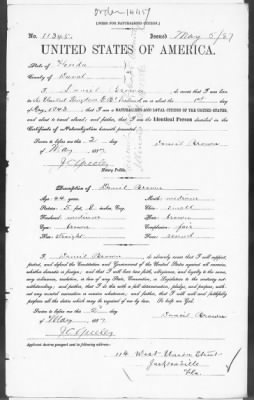 Order 16457
[FORM FOR NATURALIZED CITIZEN.]
No. 11345. Issued May 5/87
UNITED STATES OF AMERICA.
State of Florida
County of Duval
I, Daniel Brown, do swear that I was born
in the on or about the 1st day
of May, 1843; that I am a NATURALIZED AND LOYAL CITIZEN OF THE UNITED STATES,
and about to travel abroad; and further, that I am the Identical Person described in the
Certificate of Naturalization herewith presented.
Sworn to before me this 2 day
of May 1887
Daniel Brown
Notary Public.
Description of Daniel Brown
Age: 44 years. Mouth: medium
Stature: 5 feet, 6 inches, Eng. Chin: small
Forehead: medium Hair: brown
Eyes: brown Complexion: fair
Nose: straight Face: round
I, Daniel Brown, do solemnly swear that I will support,
protect, and defend the Constitution and Government of the United States against all enemies,
whether domestic or foreign; and that I will bear true faith, allegiance, and loyalty to the same,
any ordinance, resolution, or law of any State, Convention, or Legislature to the contrary not-
withstanding; and further, that I do this with a full determination, pledge, and purpose, with-
out any mental reservation or evasion whatsoever; and further, that I will well and faithfully
perform all the duties which may be required of me by law. So help me God.
Sworn to before me this 2 day
of May 1887
Daniel Brown
Applicant desires passport sent to following address:
114 West Union Street
Jacksonville
Fla.